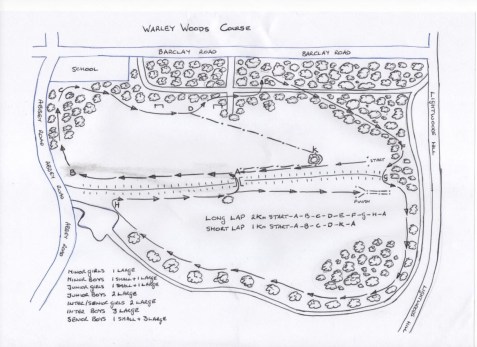 WARLEY WOODS COURSE
BARCLAY ROAD
BARCLAY ROAD
SCHOOL
ABBEY ROAD
ABBEY ROAD
ABBEY ROAD
LIGHTWOODS HILL
LIGHTWOODS HILL
C
D
E
K
START
B
A
G
H
FINISH
LONG LAP 2Km START-A-B-C-D-E-F-G-H-A
SHORT LAP 1Km START-A-B-C-D-K-A
MINOR GIRLS 1 LARGE
MINOR BOYS 1 SMALL + 1 LARGE
JUNIOR GIRLS 1 SMALL + 1 LARGE
JUNIOR BOYS 2 LARGE
INTER/SENIOR GIRLS 2 LARGE
INTER BOYS 3 LARGE
SENIOR BOYS 1 SMALL + 3 LARGE